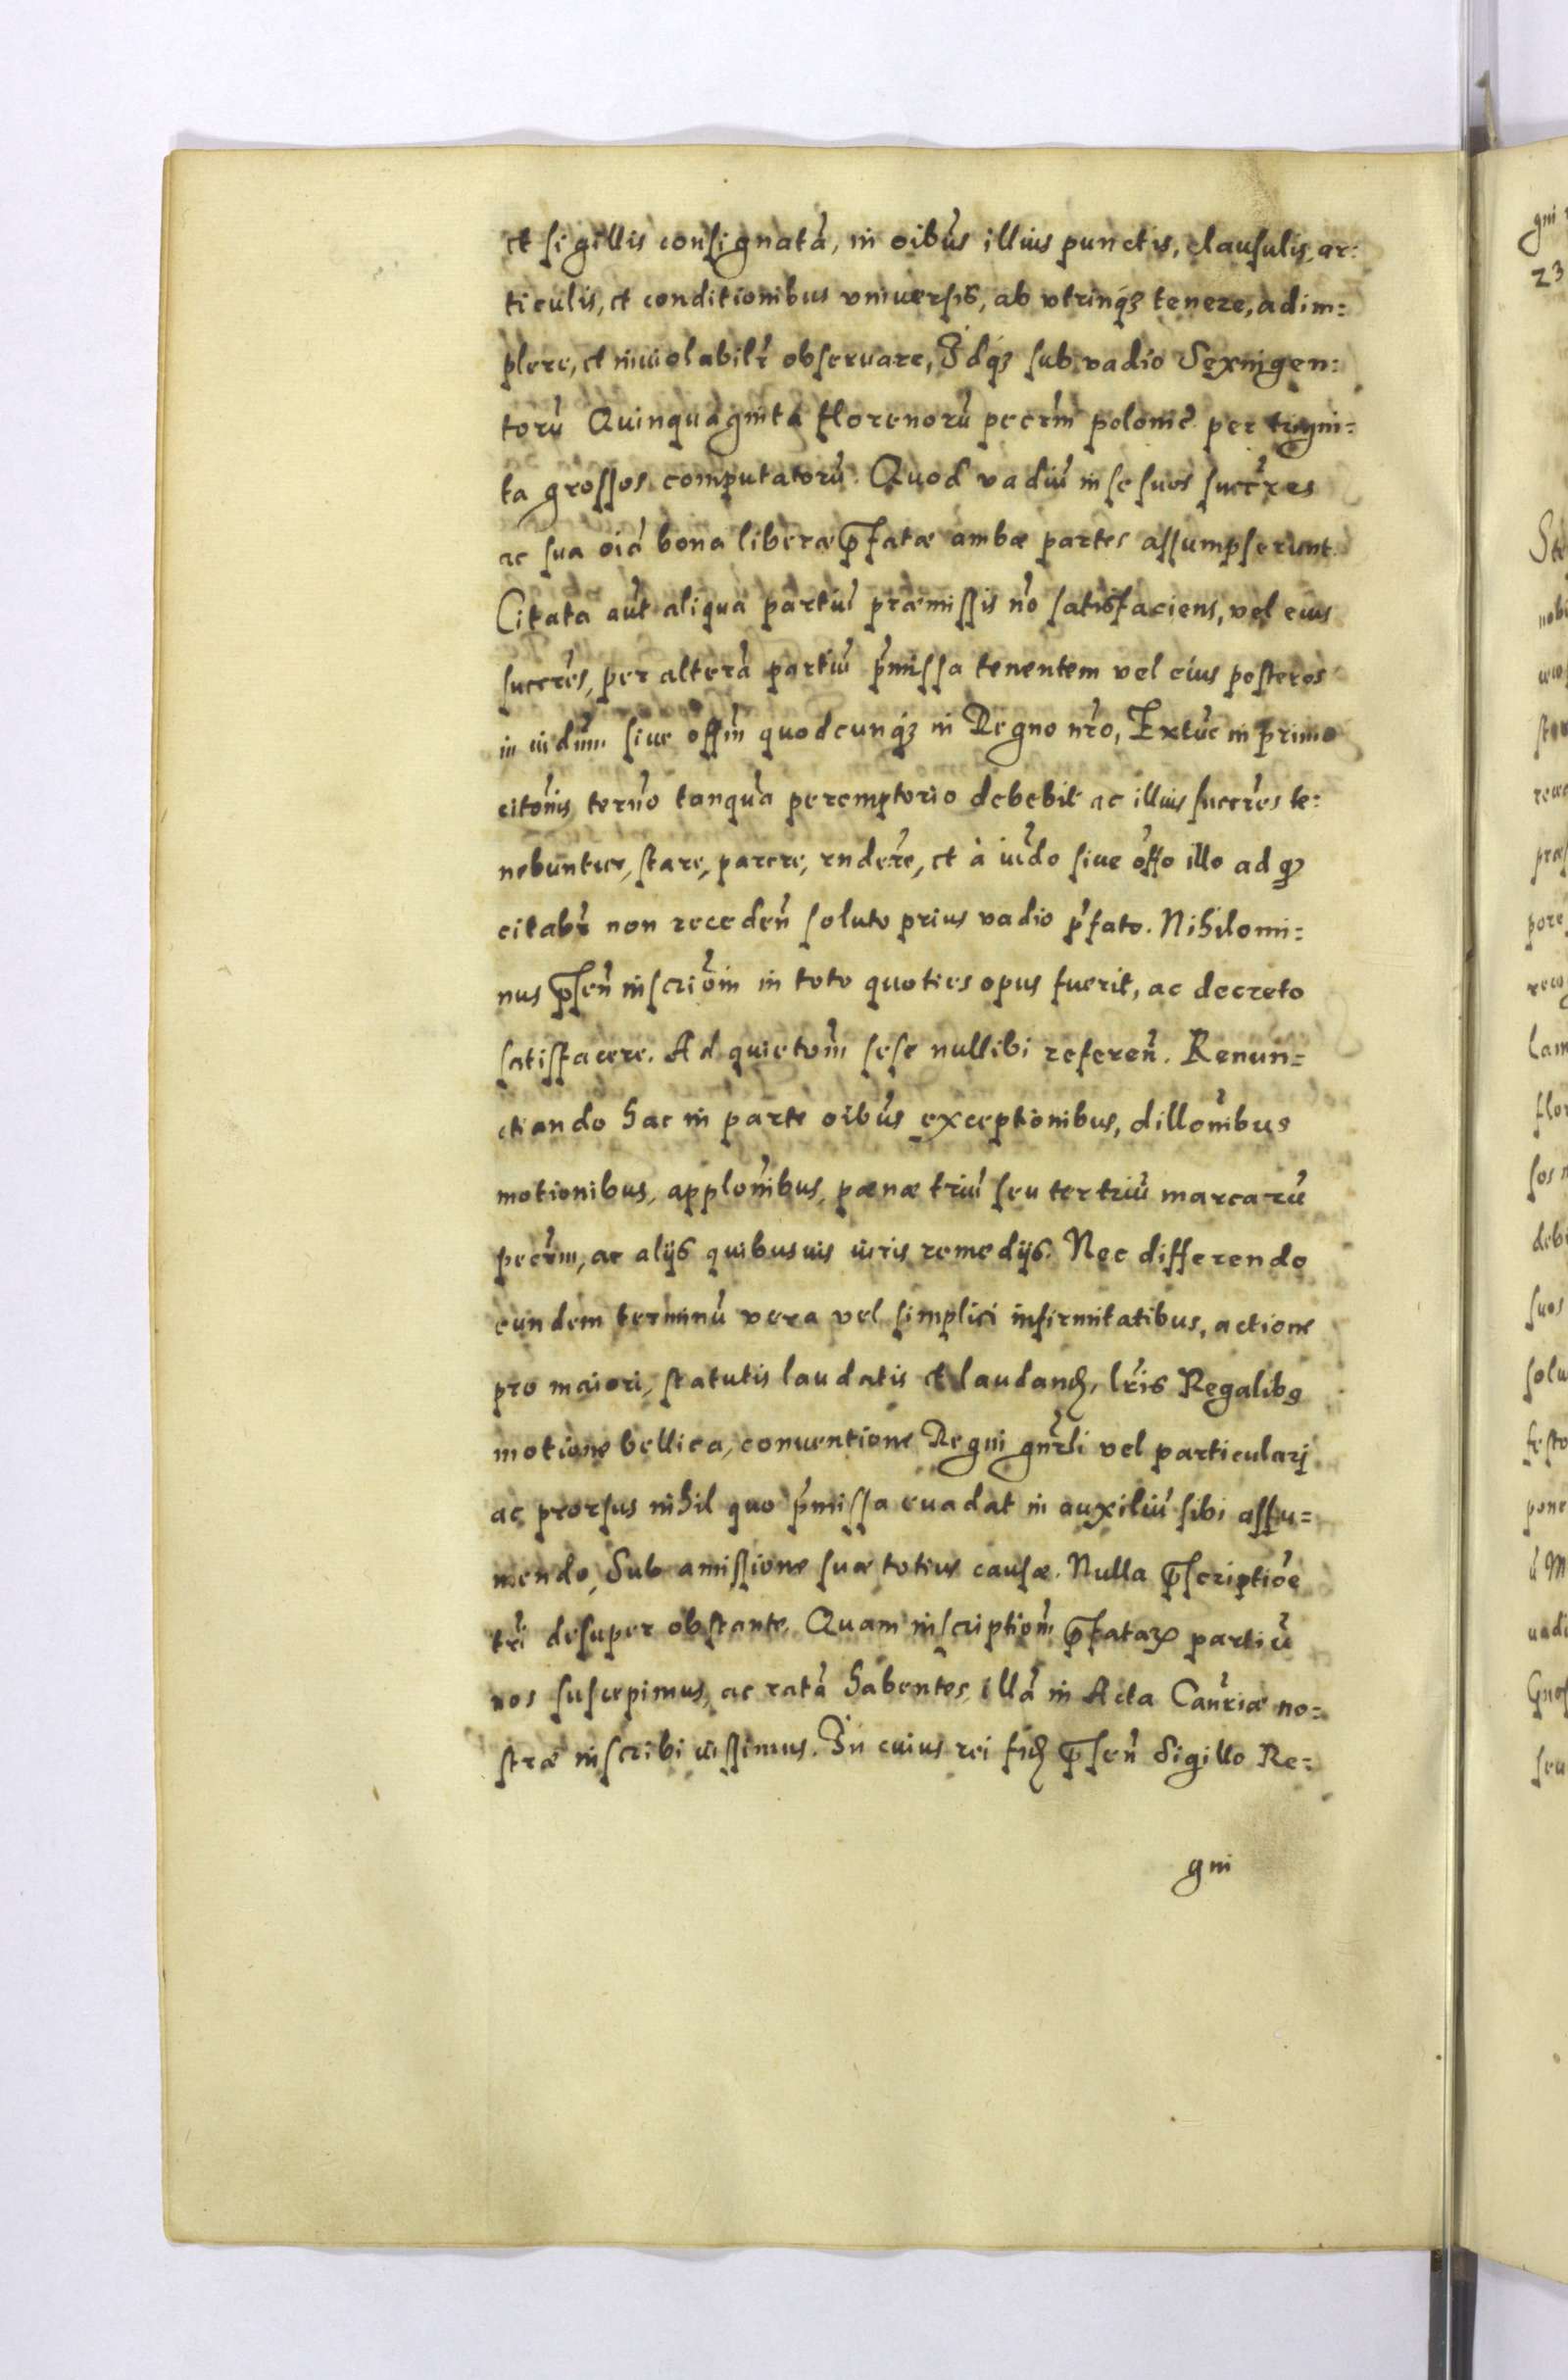 et sigillis consignatã, in oibũs illius punctis, clausulis, ar:
ticulis, et conditionibus vniuersis, ab vtrinq́ꝫ tenere, adim=
plere, et inuiolabilr̃ obseruare, Idq́ꝫ sub vadio Sexingen:
torũ Quinquaginta florenorũ pecrĩn polonic̃ per trigin=
ta grossos computatorũ. Quod vadiũ in se suos succr̃es
ac sua oiã bona libera p̃fatæ ambæ partes assumpserunt.
Citata aũt aliqua partiũ præmissis nõ satisfaciens, vel eius
succr̃es, per alterã partiũ p̃missa tenentem vel eius posteros
in iudm̃ siue offm̃ quodcunq́ꝫ in Regno nr̃o, Extũc in primo
citõnis ternõ tanquã peremptorio debebit ac illius succr̃es te:
nebuntur, stare, parere, rndere, et à iud̃o siue offõ illo ad qꝫ
citabr̃ non receden̄ soluto prius vadio p̃fato. Nihilomi=
nus p̃sen̄ inscriõni in toto quoties opus fuerit, ac decreto
satisfacere. Ad quietom̃ sese nullibi referen̄. Renun=
ctiando hac in parte oibũs exceptionibus, dillonibus
motionibus, applõnibus, pænæ triũ seu ter triũ marcarũ
pecr̃m, ac alijs quibusuis iuris remedijs. Nec differendo
eundem terminũ vera vel simplici infirmitatibus, actione
pro maiori, statutis laudatis et laudanꝫ, lr̃is Regalibꝫ
motione bellica, conuentione Regni gnr̃li vel particulari
ac prorsus nihil quo p̃missa euadat in auxiliũ sibi assu=
mendo, Sub amissione suæ totius causæ. Nulla p̃scriptiõe
trr̃i desuper obstante. Quam inscriptionm̃ p̃fataꝝ partiũ
nos suscepimus, ac ratã habentes, illã in Acta Canr̃iæ no=
stræ inscribi iussimus. In cuius rei fidꝫ p̃sen̄ Sigillo Re=
gni